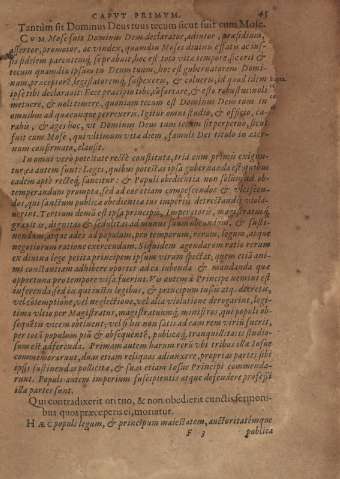 CAPVT PRIMVM. 45
Tantùm sit Dominus Deus tuus tecum sicut fuit cum Mose.
CVM Mose fuit Dominus Deus declarator, adiutor, præsidium,
assertor, promotor, ac vindex, quamdiu Moses diuinis
tecum quamdiu ipsum tu Deum tuum, hoc est gubernatorem
num, præceptorē, legislatorémq, suspexeris, & colueris, id quod idem
ipse tibi declarauit: Ecce præcipio tibi, confortare, & esto robustus: noli
metuere, & noli timere, quoniam tecum est Dominus Deus tuus in
omnibus ad quæcunque perrexeris. Igitur omni studio, & officio, ca-
rabis, & ages hoc, vt Dominus Deus tuus tecum sit perpetuò, sicut
fuit cum Mose, qui vltimum vitæ diem, famuli Dei titulo in æter-
num confirmato, clausit.
In omni verò potestate rectè constituta, tria cum primis exigun-
tur, ea autem sunt: Leges, quibus potestas ipsa gubernanda est quibus
eadem aptè rectéq, sanciatur: & Populi obedientia non solùm ad ob-
temperandum prompta, sed ad eos etiam compescendos & vlciscen-
dos, qui sanctum publica obedientia ius imperiis detrectandis viola-
uerint. Tertium demū est ipsa principis, Imperatoris, magistratuúq,
grauitas, dignitas & sedulitas ad munus suum obeundum, & susti-
nendum, atque adeò ad populum, pro temporum, rerum, legum, atque
negotiorum ratione exercendum. Siquidem agendarum ratio rerum
ex diuina lege petita principem ipsum virum spectat, quem etiā ani-
mi constantiam adhibere oportet ad ea iubenda & mandanda quæ
opportuna pro tempore visa fuerint. Vis autem à Principe nemini est
inferenda sed ea qui initis legibus, & principum iussis atq, decretis,
vel contemptione, vel neglectione, vel alia violatione derogarint, legi-
tima vltio per Magistratus, magistratuúmq, ministros, qui populi ob-
sequētis vicem obtinent, vel si hi non satis ad eam rem virium fuerit,
per totū populum pius & obsequentē, publicæq, tranquillitatis studio-
sum est afferenda. Primam autem harum rerū vbi tribus illa Iosue
commemorarunt, duas etiam reliquas adiunxere, propriis partes sibi
ipsis sustinendas polliciti, & suas etiam Iosue Principi commenda-
runt. Populi autem imperium suscipientis atque defendere professi
illa partes sunt.
Qui contradixerit ori tuo, & non obedierit cunctis sermoni-
bus quos præceperis ei, moriatur.
HAEC populi legum, & principum maiestatem, auctoritatémque
F 3 publica